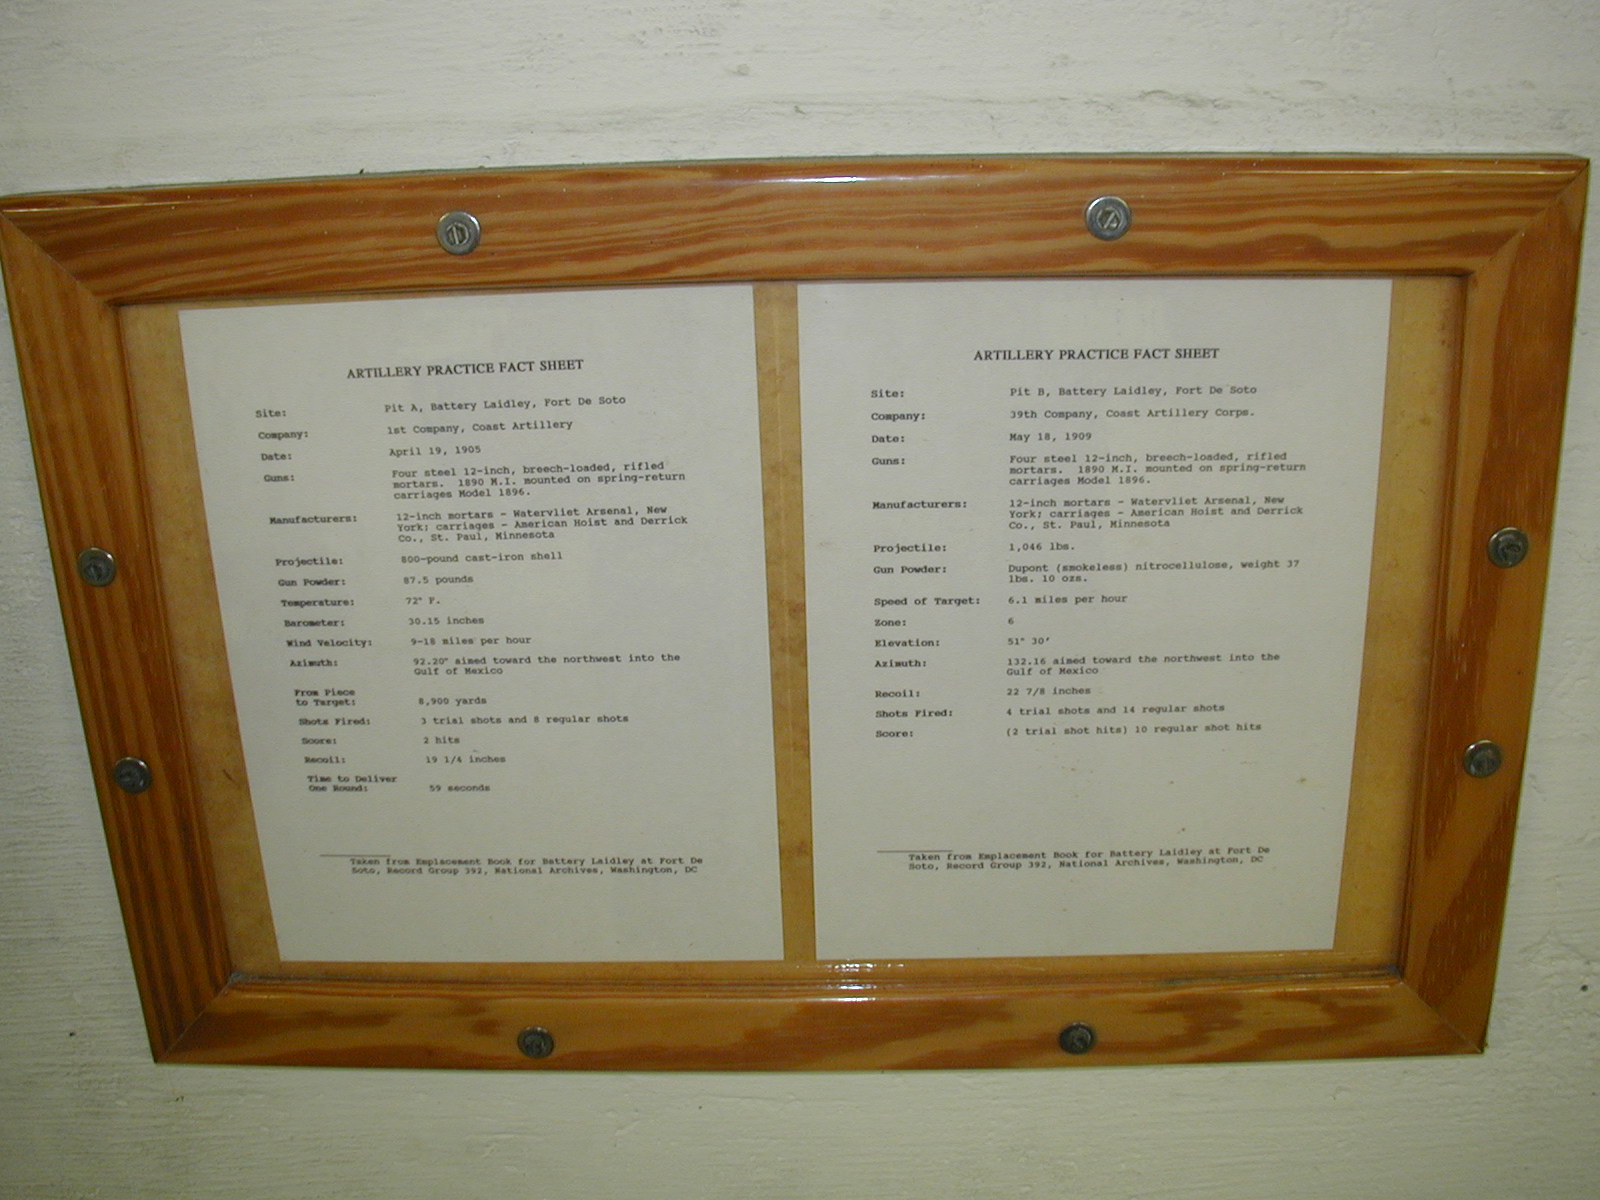 ARTILLERY PRACTICE FACT SHEET
Site: Pit A, Battery Laidley, Fort De Soto
Company: 1st Company, Coast Artillery
Date: April 19, 1905
Guns: Four steel 12-inch, breech-loaded, rifled
mortars. 1890 M.I. mounted on spring-return
carriages Model 1896.
Manufacturers: 12-inch mortars - Watervliet Arsenal, New
York; carriages - American Hoist and Derrick
Co., St. Paul, Minnesota
Projectile: 800-pound cast-iron shell
Gun Powder: 87.5 pounds
Temperature: 72° F.
Barometer: 30.15 inches
Wind Velocity: 9-18 miles per hour
Azimuth: 92.20° aimed toward the northwest into the
Gulf of Mexico
From Piece
to Target: 8,900 yards
Shots Fired: 3 trial shots and 8 regular shots
Score: 2 hits
Recoil: 19 1/4 inches
Time to Deliver
One Round: 59 seconds
Taken from Emplacement Book for Battery Laidley at Fort De
Soto, Record Group 392, National Archives, Washington, DC
ARTILLERY PRACTICE FACT SHEET
Site: Pit B, Battery Laidley, Fort De Soto
Company: 39th Company, Coast Artillery Corps.
Date: May 18, 1909
Guns: Four steel 12-inch, breech-loaded, rifled
mortars. 1890 M.I. mounted on spring-return
carriages Model 1896.
Manufacturers: 12-inch mortars - Watervliet Arsenal, New
York; carriages - American Hoist and Derrick
Co., St. Paul, Minnesota
Projectile: 1,046 lbs.
Gun Powder: Dupont (smokeless) nitrocellulose, weight 37
lbs. 10 ozs.
Speed of Target: 6.1 miles per hour
Zone: 6
Elevation: 51° 30'
Azimuth: 132.16 aimed toward the northwest into the
Gulf of Mexico
Recoil: 22 7/8 inches
Shots Fired: 4 trial shots and 14 regular shots
Score: (2 trial shot hits) 10 regular shot hits
Taken from Emplacement Book for Battery Laidley at Fort De
Soto, Record Group 392, National Archives, Washington, DC